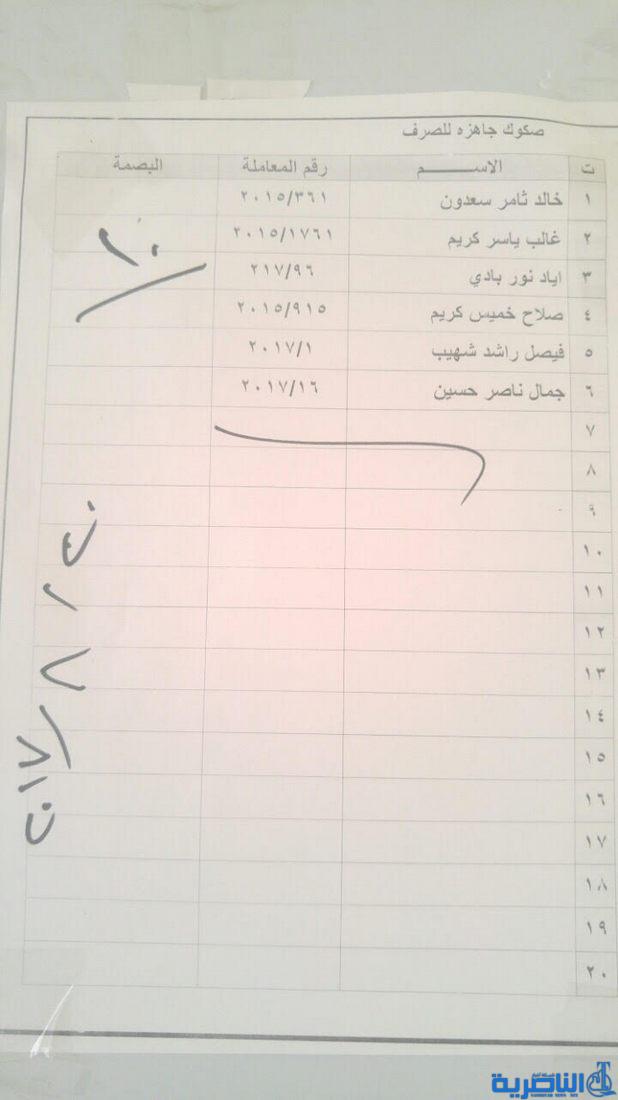 صكوك جاهزه للصرف
ت الاســـــم رقم المعاملة البصمة
١ خالد ثامر سعدون ٢٠١٥/٣٦١
٢ غالب ياسر كريم ٢٠١٥/١٧٦١
٣ اياد نور بادي ٢١٧/٩٦
٤ صلاح خميس كريم ٢٠١٥/٩١٥
٥ فيصل راشد شهيب ٢٠١٧/١
٦ جمال ناصر حسين ٢٠١٧/١٦
٧
٨
٩
١٠
١١
١٢
١٣
١٤
١٥
١٦
١٧
١٨
١٩
٢٠
الناصرية